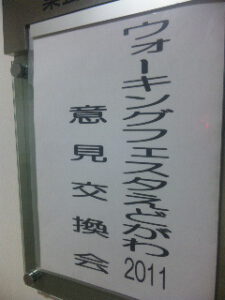 ウォーキングフェスタえどがわ2011
意見交換会